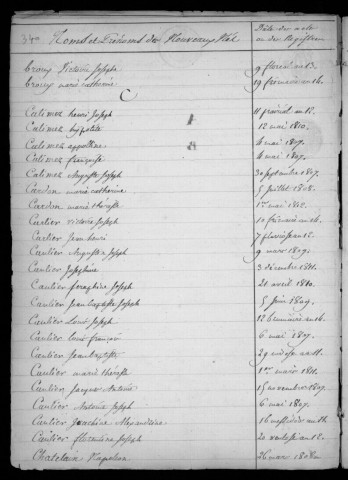 Noms et Prénoms des Nouveaux Nés
Date des actes
ou des Registres
Victoire Joseph 9 floréal an 13
marie catherine 19 frimaire an 14.
C
Calomez henri Joseph 11 prairial an 12.
Calomez hypolite 12 mai 1810.
Calomez appolline 4 mai 1807.
Calomez françoise 4 mai 1807.
Calomez Auguste Joseph 30 septembre 1807.
Cardon marie catherine 5 juillet 1808.
Cardon marie thérèse 1er mai 1812.
Carlier victoire Joseph 10 frimaire an 14.
Cartier Jean henri 7 floréal an 12.
Cautier Augustin Joseph 9 mars 1809.
Cautier Joséphine 3 décembre 1811.
Cautier Séraphine Joseph 21 avril 1810.
Cautier Jean baptiste Joseph 5 Juin 1809.
Cautier Louis Joseph 12 brumaire an 14.
Cautier Louis françois 6 mai 1807.
Cautier Jean baptiste 29 an 11.
Cautier marie thérèse 1er mars 1811.
Cautier Jacques Antoine 15 novembre 1807.
Cautier Antoine Joseph 6 mai 1807.
Cautier Joachim Alexandrine 16 messidor an 11.
Cautier florentine Joseph 20 ventose an 12.
Chatelain Napoléon 26 mars 1808.